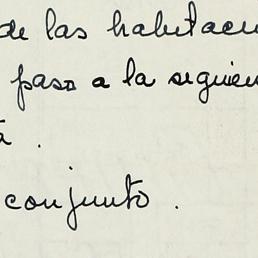 de las habitacu
paso a la siguien
a .
conjunto .